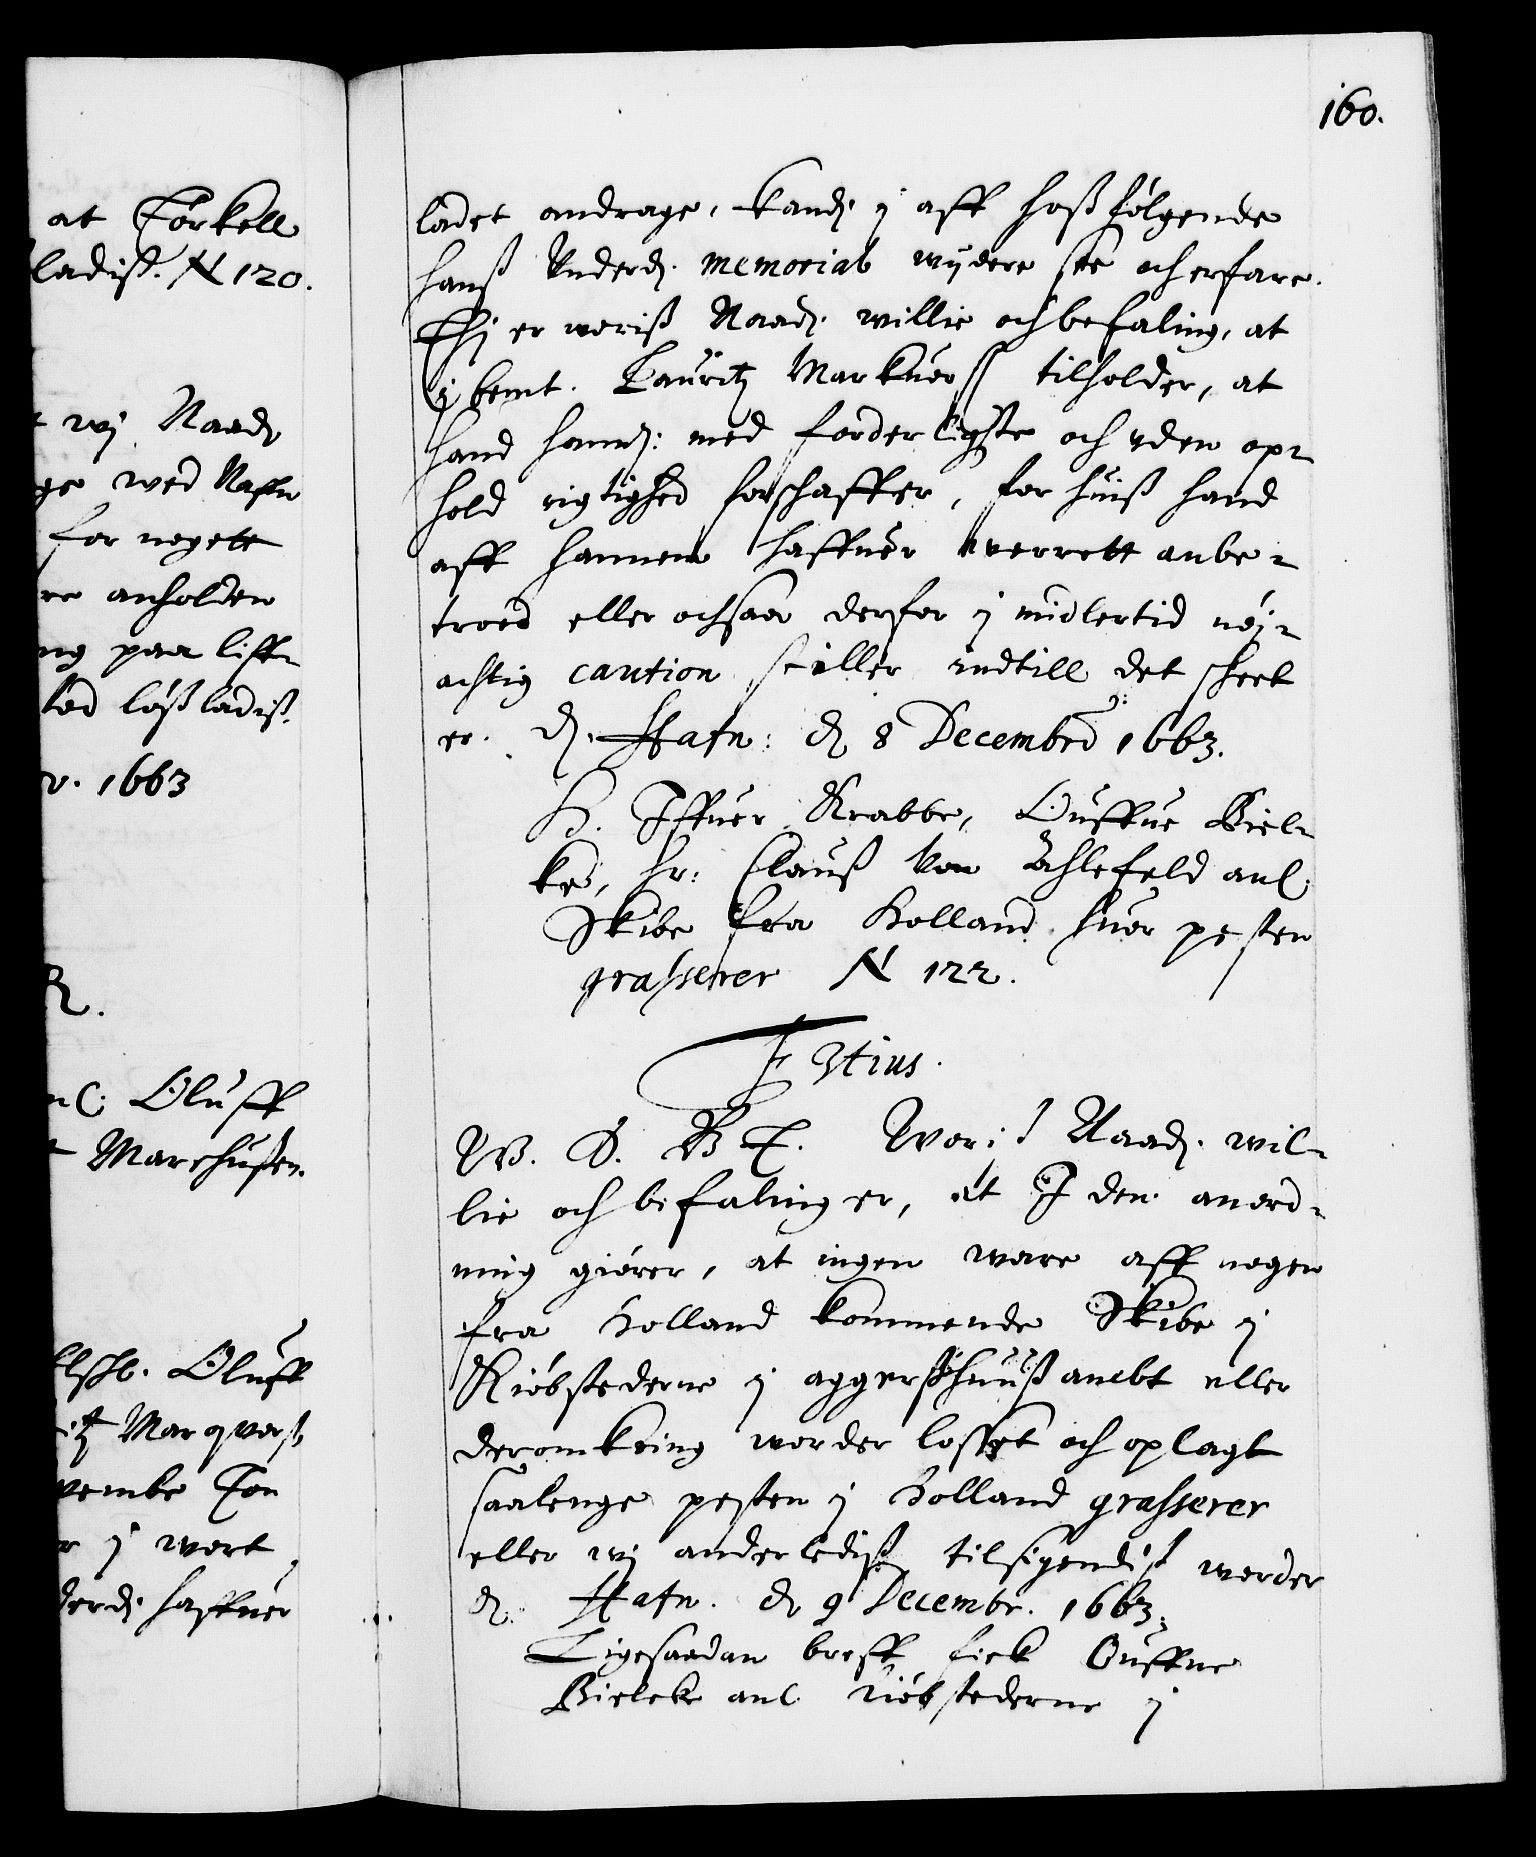 160.
at Torkell
ladiß. N 120.
wj Naadh
ge wed Nafn
for nogett
re anholden
ng paa liffs
sted løßladiß.
v. 1663
R.
nl: Oluff
t Marchußen.
Elschl. Oluff
itz Marqvorß
vembr Ton
r j wort
derd: haffuer
ladet andrage, kand j aff hoßfølgende
hanß Underd: memorial wijdere see och erfare.
Thj er woriß Naadh. willie och befaling, at
j bemt. Lauritz Markuorß tilholder, at
hand hannem: med forderligste och uden op-
hold rigtighed forschaffer, for huiß hand
aff hannem haffuer werrett anbe-
troed eller ochsaa derfor j midlertid nøj-
achtig caution stiller indtill det skeet
er. D. Hafn: d 8 Decembr 1663.
H. Iffuer Krabbe, Ouffue Biel-
ke, hr: Clauß von Ahlefeld anl:
Skibe fra Holland huor pesten
grasserer N 122.
F 3tius.
W. S. G T. Woriß Naadh. wil-
lie och befaling er, at I den anord-
ning giører, at ingen ware aff nogen
fra Holland kommende Skibe j
Kiøbstederne j aggerßhuuß ambt eller
deromkring worder losset och oplagt
saalenge pesten j Holland grasserer
eller wj anderlediß tilsigendiß worder
D. Hafn. d 9 Decembr. 1663.
Ligesaadan breff fick Ouffue
Bielcke anl. Kiøbstederne j